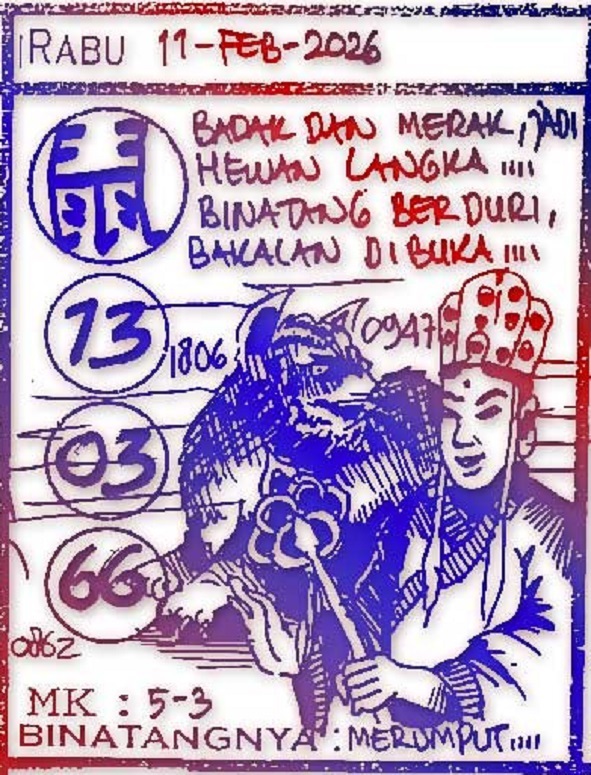 RABU 11-FEB-2026
BADAK DAN MERAK, JADI
HEWAN LANGKA ....
BINATANG BERDURI,
BAKALAN DIBUKA ....
鼠
13
1806
0947
03
66
0862
MK : 5-3
BINATANGNYA : MERUMPUT....